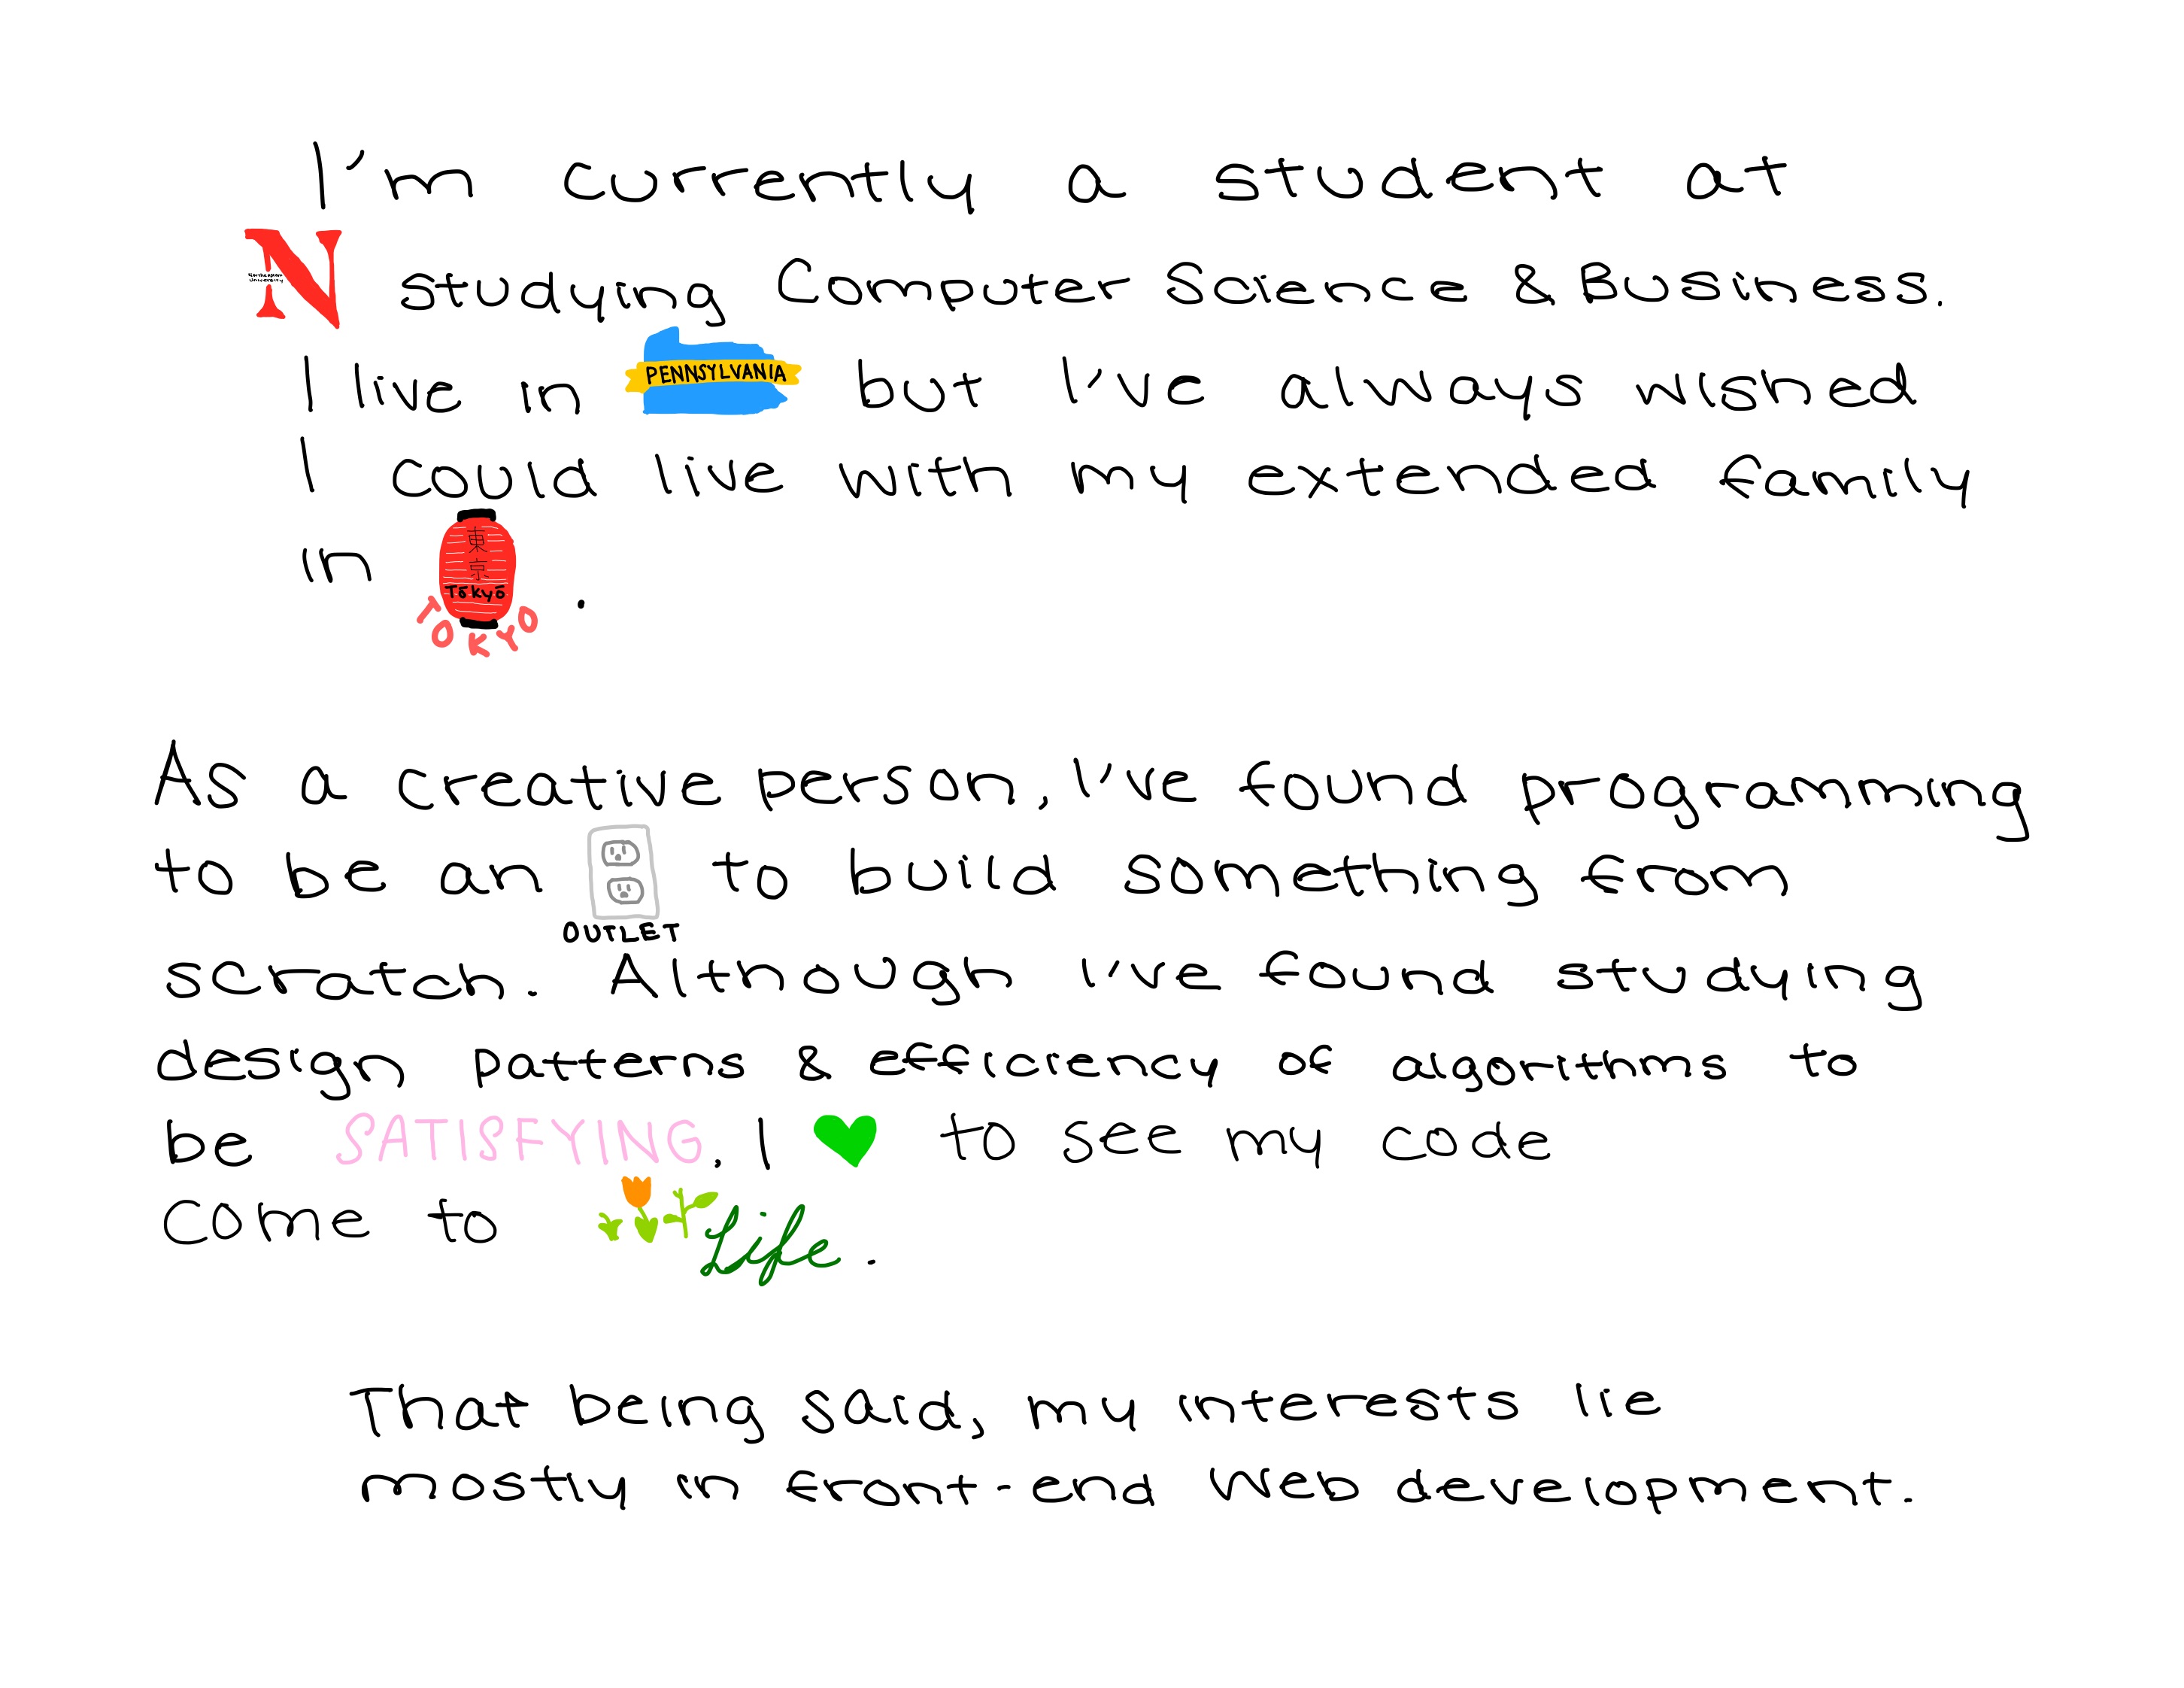 I'm currently a student at
N Northeastern University studying Computer Science & Business.
I live in PENNSYLVANIA but I've always wished
I could live with my extended family
in 東京 Tōkyō TOKYO.
As a creative person, I've found programming
to be an OUTLET to build something from
scratch. Although I've found studying
design patterns & efficiency of algorithms to
be SATISFYING, I to see my code
come to Life.
That being said, my interests lie
mostly in front-end web development.